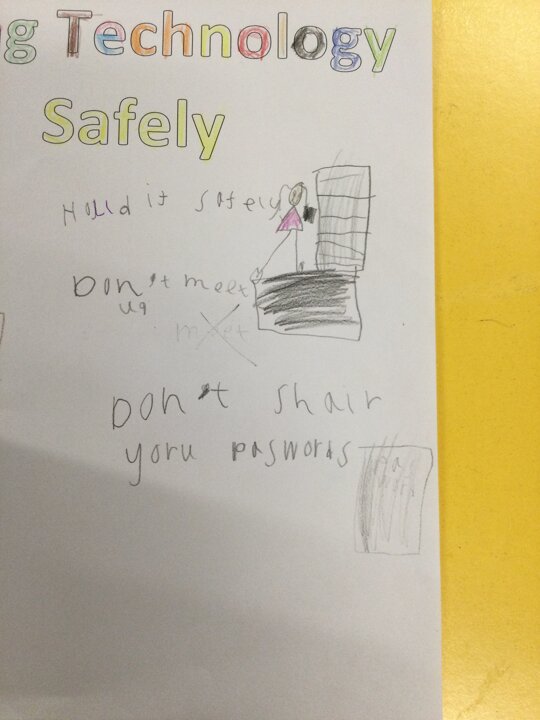 g Technology
Safely
Hold it safely
Don't meet
up
meet
Don't shair
yoru paswords